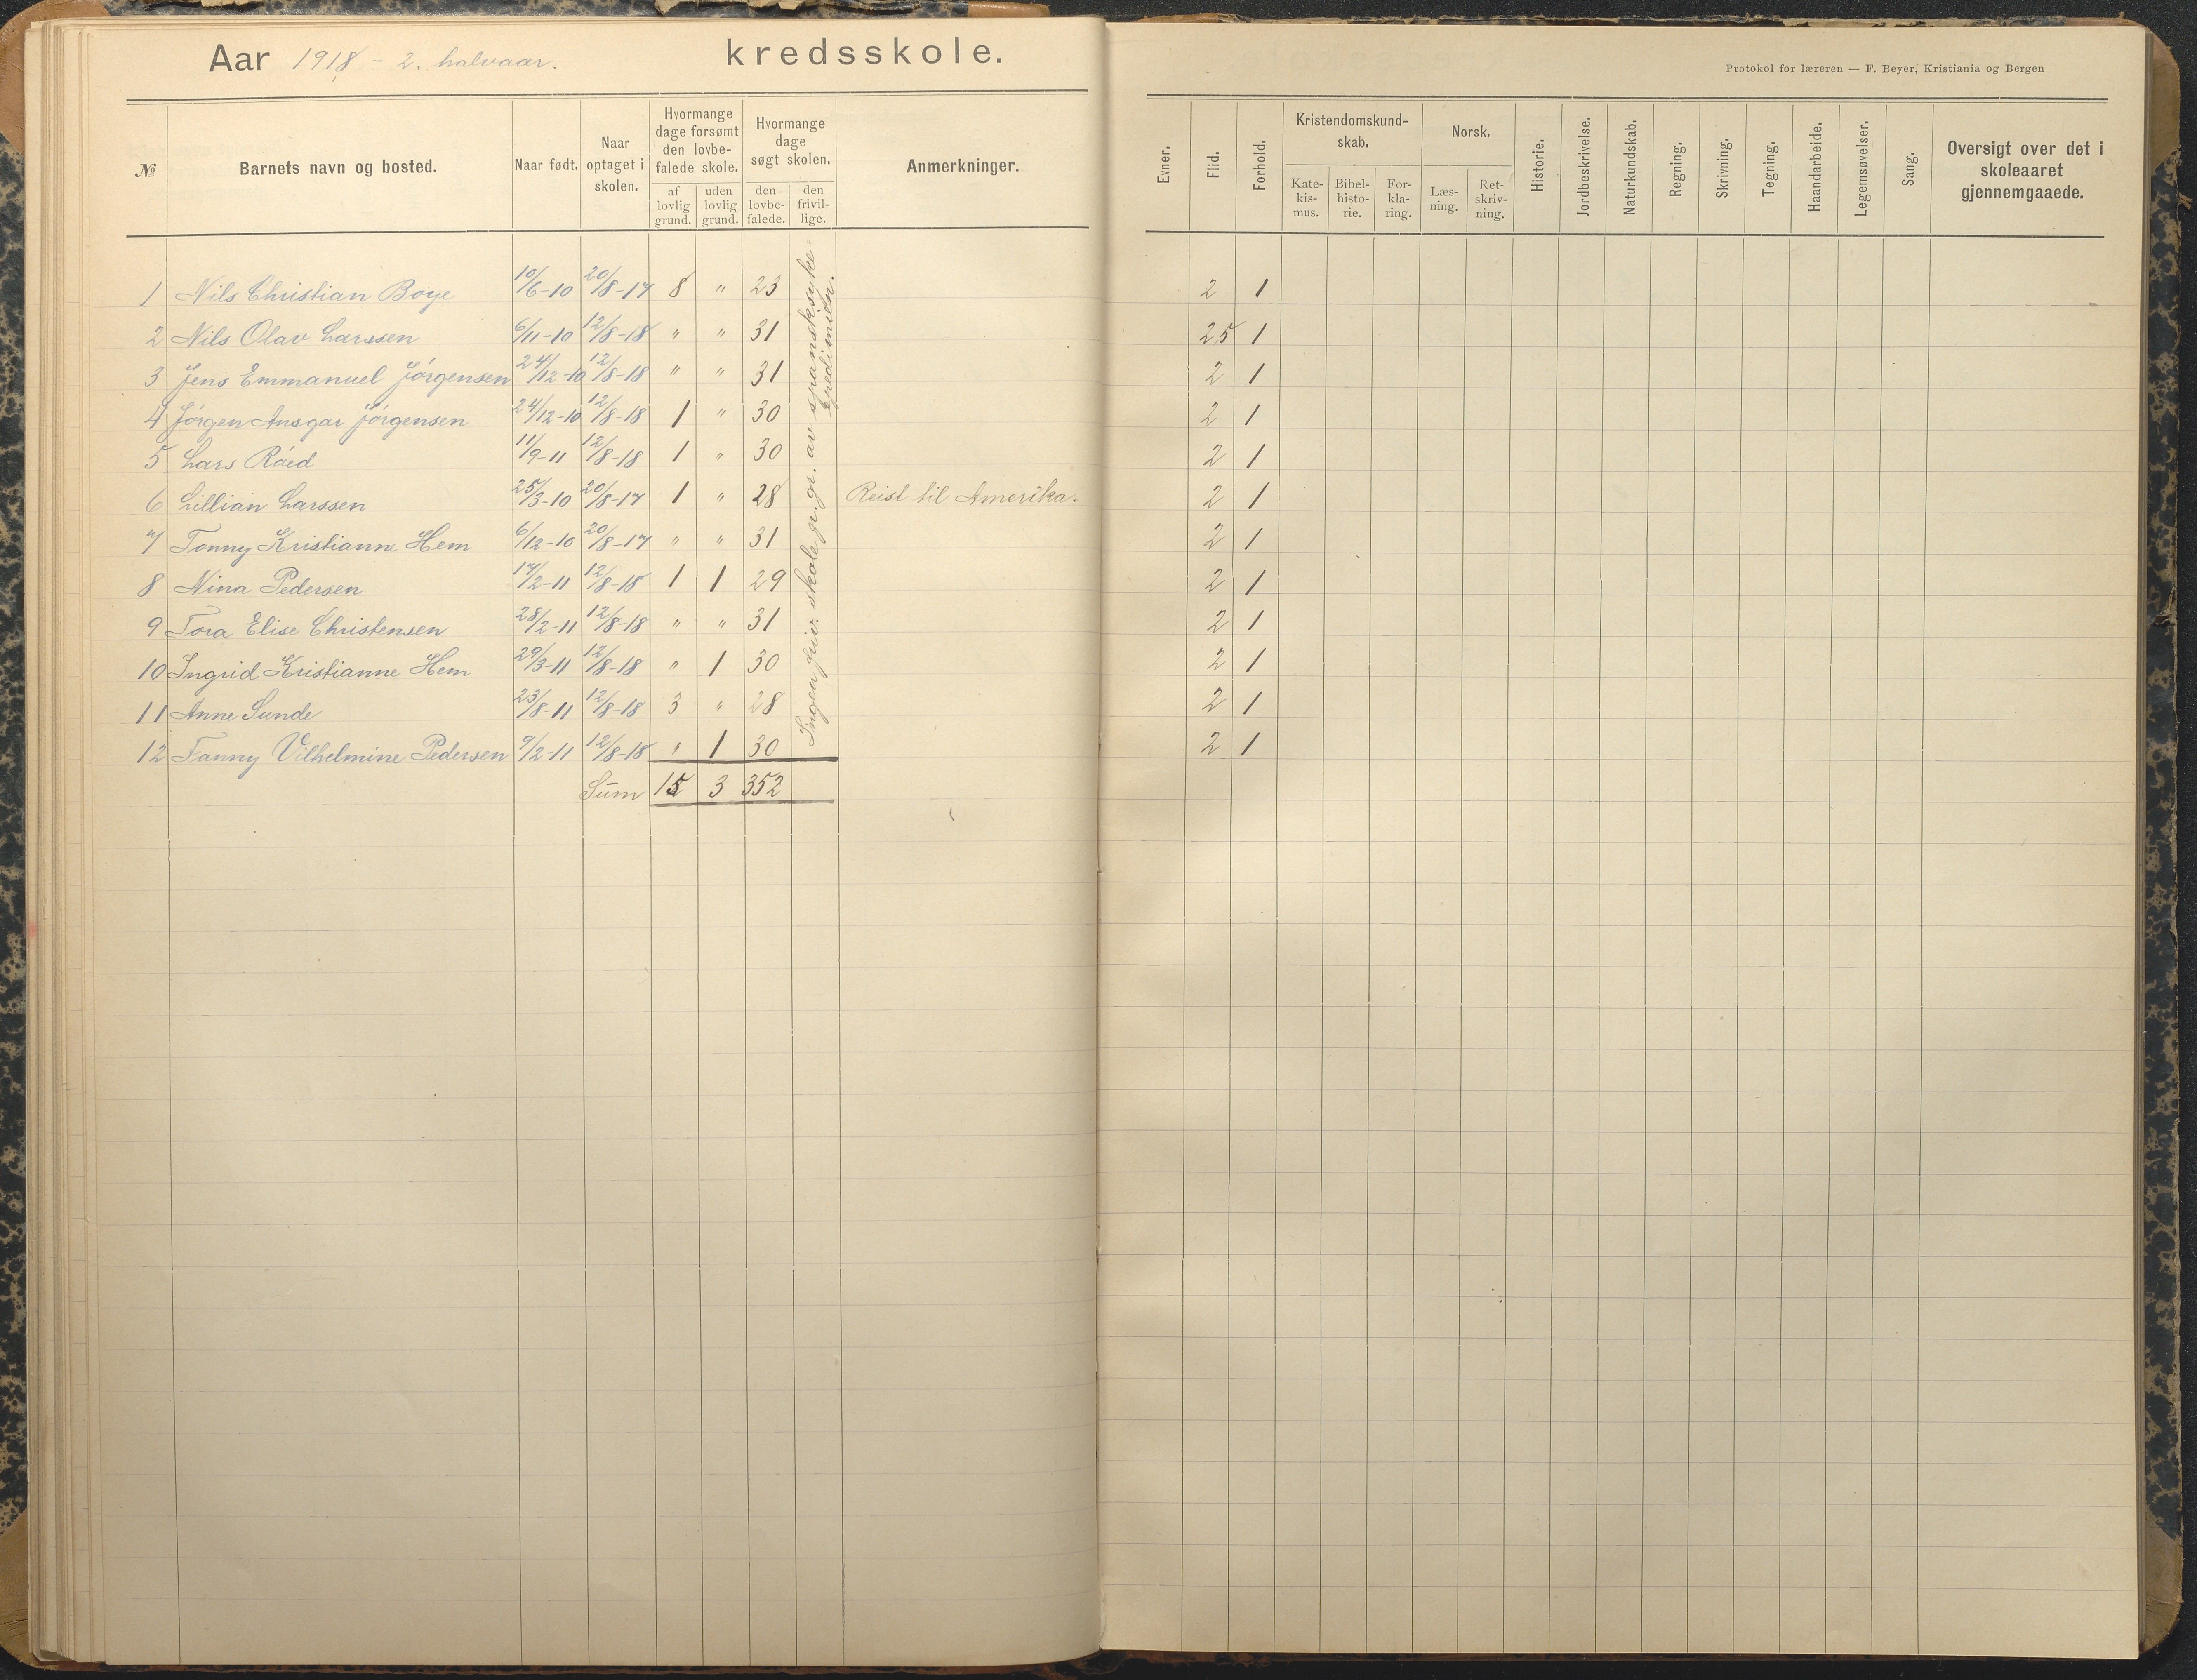 Aar 1918 - 2. halvaar. kredsskole.
Protokol for læreren — F. Beyer, Kristiania og Bergen
№ Barnets navn og bosted. Naar født. Naar optaget i skolen. Hvormange dage forsømt den lovbe- falede skole. af lovlig grund. uden lovlig grund. Hvormange dage søgt skolen. den lovbe- falede. den frivil- lige. Anmerkninger.
Evner. Flid. Forhold. Kristendomskund- skab. Kate- kis- mus. Bibel- histo- rie. For- kla- ring. Norsk. Læs- ning. Ret- skriv- ning. Historie. Jordbeskrivelse. Naturkundskab. Regning. Skrivning. Tegning. Haandarbeide. Legemsøvelser. Sang. Oversigt over det i skoleaaret gjennemgaaede.
1 Nils Christian Boye 10/6-10 20/8-17 8 " 23 2 1
2 Nils Olav Larssen 6/11-10 12/8-18 " " 31 25 1
3 Jens Emmanuel Jörgensen 24/12-10 12/8-18 " " 31 2 1
4 Jörgen Ansgar Jörgensen 24/12-10 12/8-18 1 " 30 2 1
5 Lars Röed 11/9-11 12/8-18 1 " 30 2 1
6 Lillian Larssen 25/3-10 20/8-17 1 " 28 Reist til Amerika. 2 1
7 Tonny Kristianne Hem 6/12-10 20/8-17 " " 31 2 1
8 Nina Pedersen 17/2-11 12/8-18 1 1 29 2 1
9 Tora Elise Christensen 28/2-11 12/8-18 " " 31 2 1
10 Ingrid Kristianne Hem 29/3-11 12/8-18 " 1 30 2 1
11 Anne Sunde 23/8-11 12/8-18 3 " 28 2 1
12 Fanny Vilhelmine Pedersen 9/2-11 12/8-18 " 1 30 2 1
Sum 15 3 352
Ingen friv. skole p. gr. av spansksyke-
epedimien.